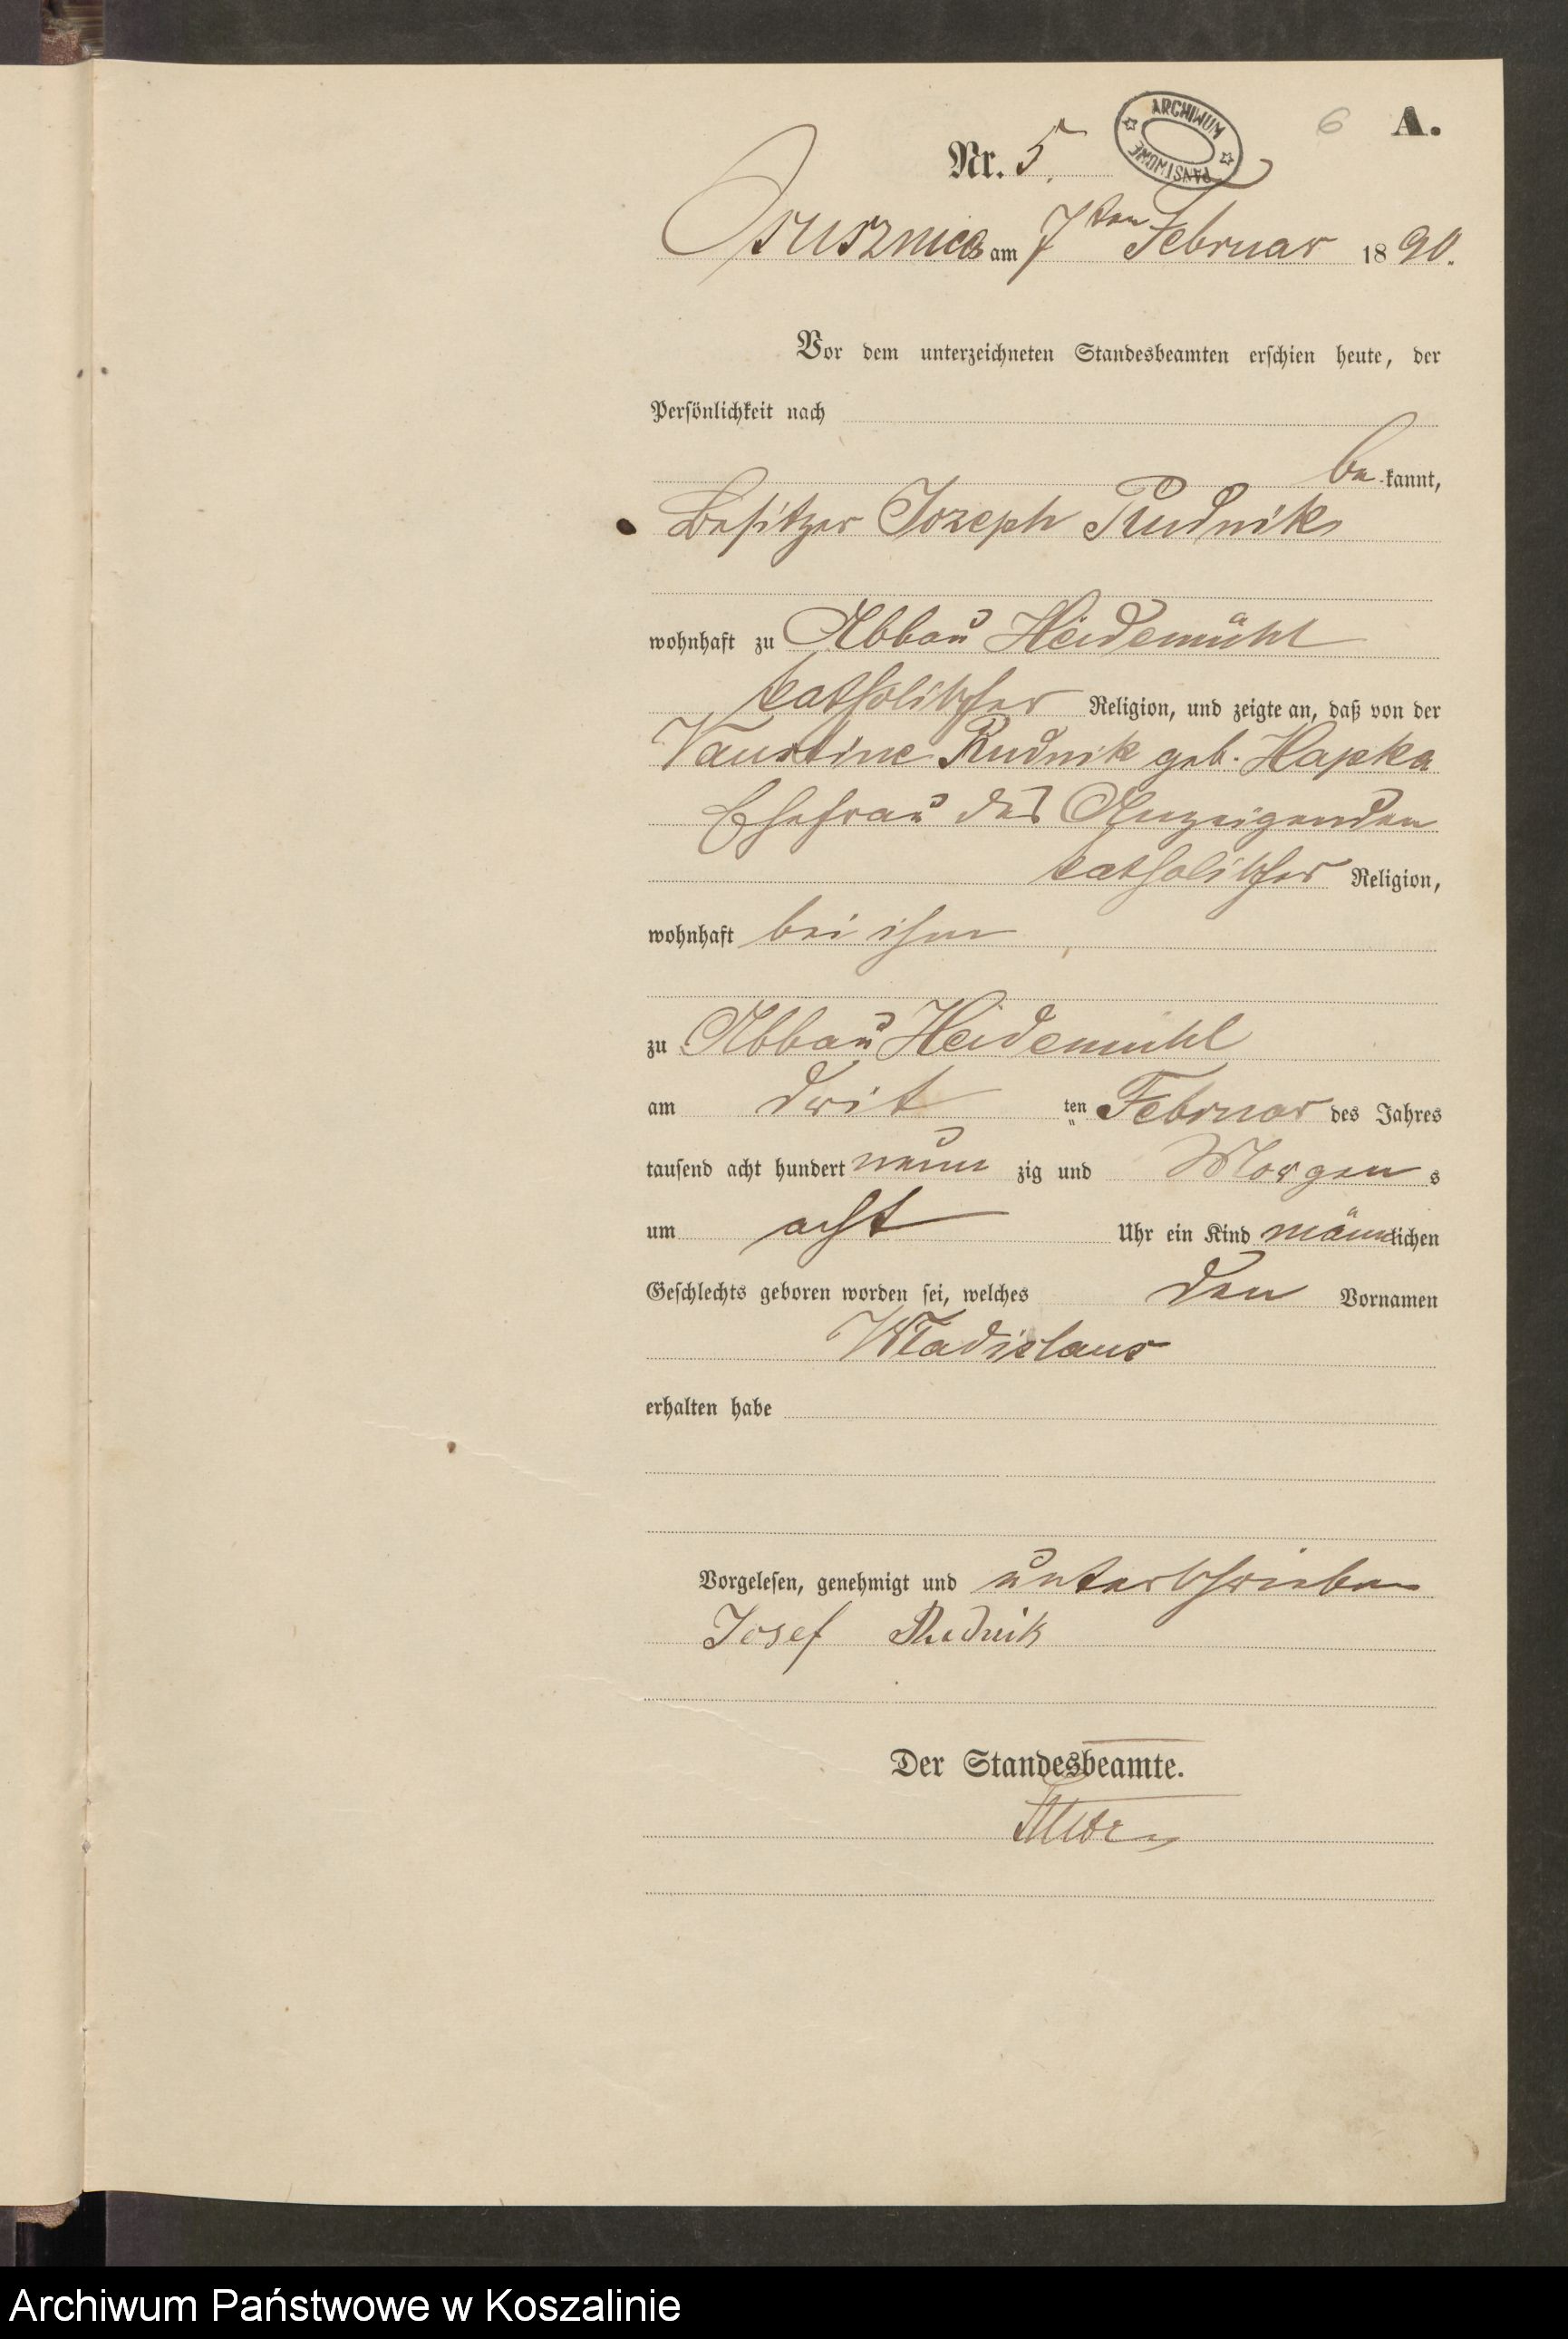 6 A.
ARCHIWUM PAŃSTWOWE
Nr. 5.
Osusznica am 7ten Februar 1890.
Vor dem unterzeichneten Standesbeamten erschien heute, der
Persönlichkeit nach
be kannt,
Besitzer Jozeph Rudnik
wohnhaft zu Abbau Heidemühl
katholischer Religion, und zeigte an, daß von der
Faustine Rudnik geb. Hapka
Ehefrau des Anzeigenden
katholischer Religion,
wohnhaft bei ihm
zu Abbau Heidemühl
am drit ten Februar des Jahres
tausend acht hundert neun zig und Morgen s
um acht Uhr ein Kind männlichen
Geschlechts geboren worden sei, welches den Vornamen
Wladislaus
erhalten habe
Vorgelesen, genehmigt und unterschrieben
Josef Rudnik
Der Standesbeamte.
Archiwum Państwowe w Koszalinie